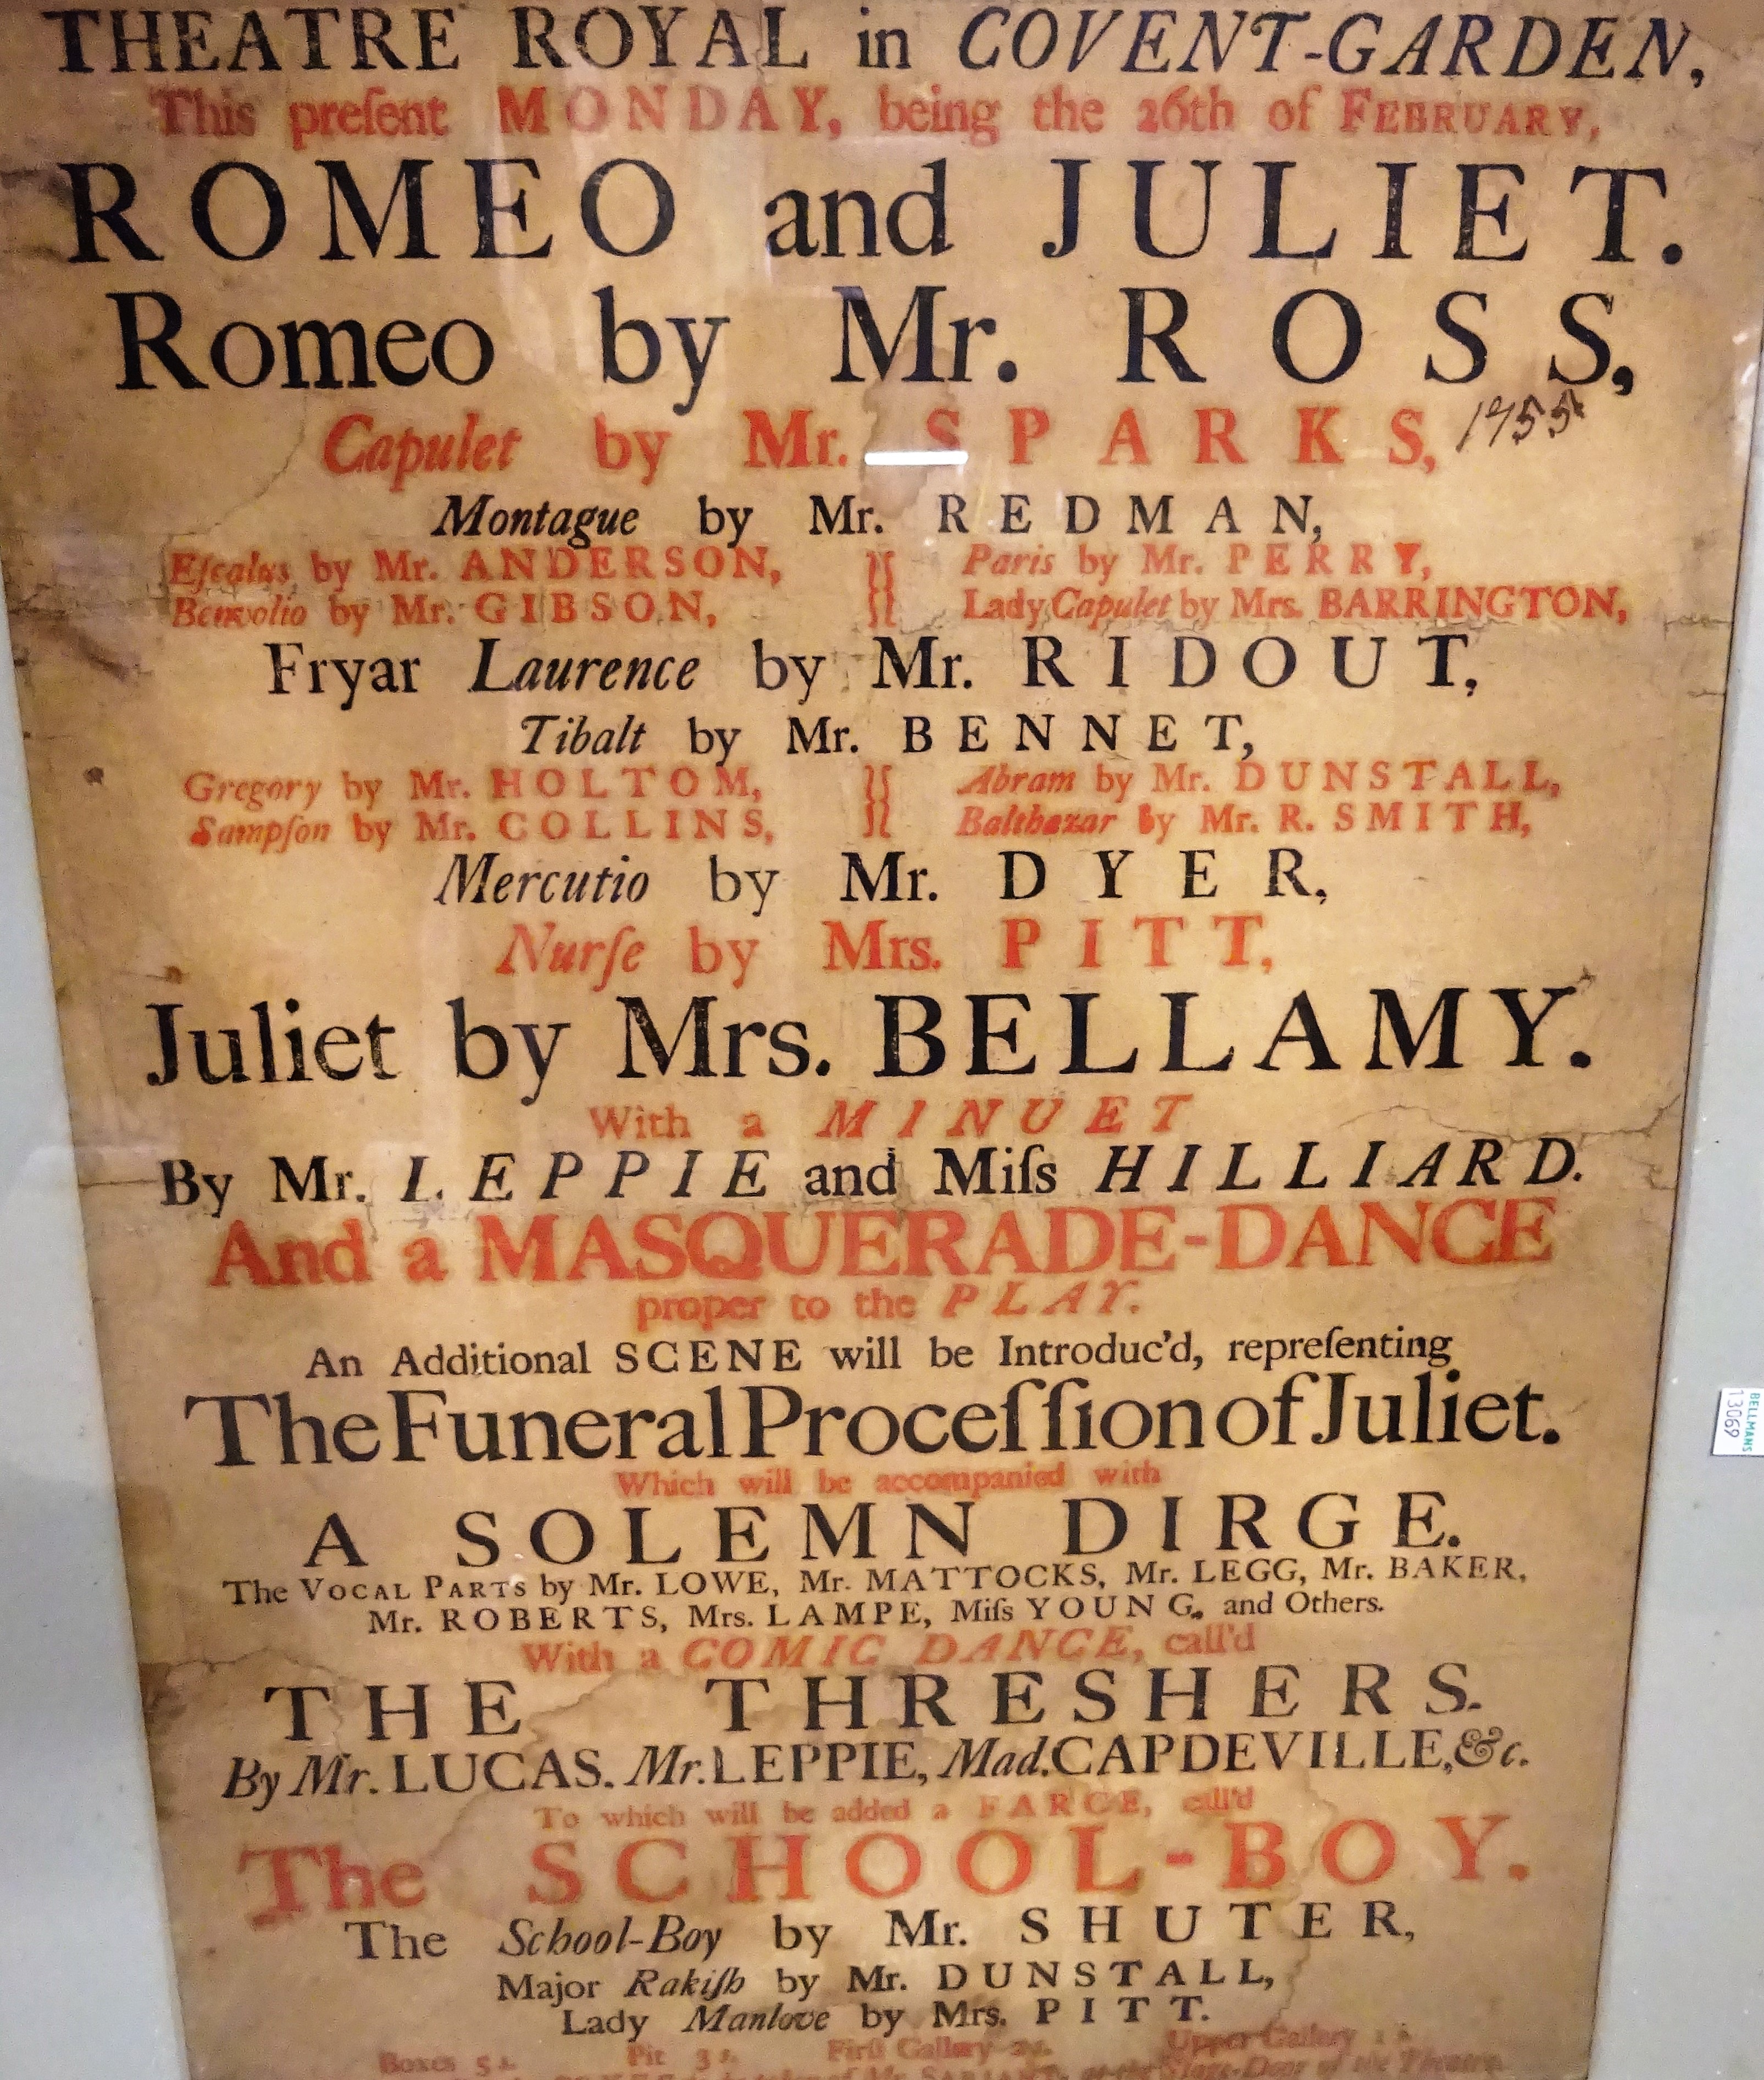 THEATRE ROYAL in COVENT-GARDEN,
This preſent MONDAY, being the 26th of FEBRUARY,
ROMEO and JULIET.
Romeo by Mr. ROSS,
Capulet by Mr. SPARKS, 1755
Montague by Mr. REDMAN,
Eſcalus by Mr. ANDERSON, Paris by Mr. PERRY,
Benvolio by Mr. GIBSON, Lady Capulet by Mrs. BARRINGTON,
Fryar Laurence by Mr. RIDOUT,
Tibalt by Mr. BENNET,
Gregory by Mr. HOLTOM, Abram by Mr. DUNSTALL,
Sampſon by Mr. COLLINS, Balthazar by Mr. R. SMITH,
Mercutio by Mr. DYER,
Nurſe by Mrs. PITT,
Juliet by Mrs. BELLAMY.
With a MINUET
By Mr. LEPPIE and Miſs HILLIARD.
And a MASQUERADE-DANCE
proper to the PLAY.
An Additional SCENE will be Introduc'd, repreſenting
The Funeral Proceſſion of Juliet.
Which will be accompanied with
A SOLEMN DIRGE.
The VOCAL PARTS by Mr. LOWE, Mr. MATTOCKS, Mr. LEGG, Mr. BAKER,
Mr. ROBERTS, Mrs. LAMPE, Miſs YOUNG, and Others.
With a COMIC DANCE, call'd
THE THRESHERS.
By Mr. LUCAS. Mr. LEPPIE, Mad. CAPDEVILLE, &c.
To which will be added a FARCE, call'd
The SCHOOL-BOY.
The School-Boy by Mr. SHUTER,
Major Rakiſh by Mr. DUNSTALL,
Lady Manlove by Mrs. PITT.
Boxes 5s. Pit 3s. Firſt Gallery 2s. Upper Gallery 1s.
of Mr. SARJANT, at the Stage-Door of the Theatre
BELLMANS
13069